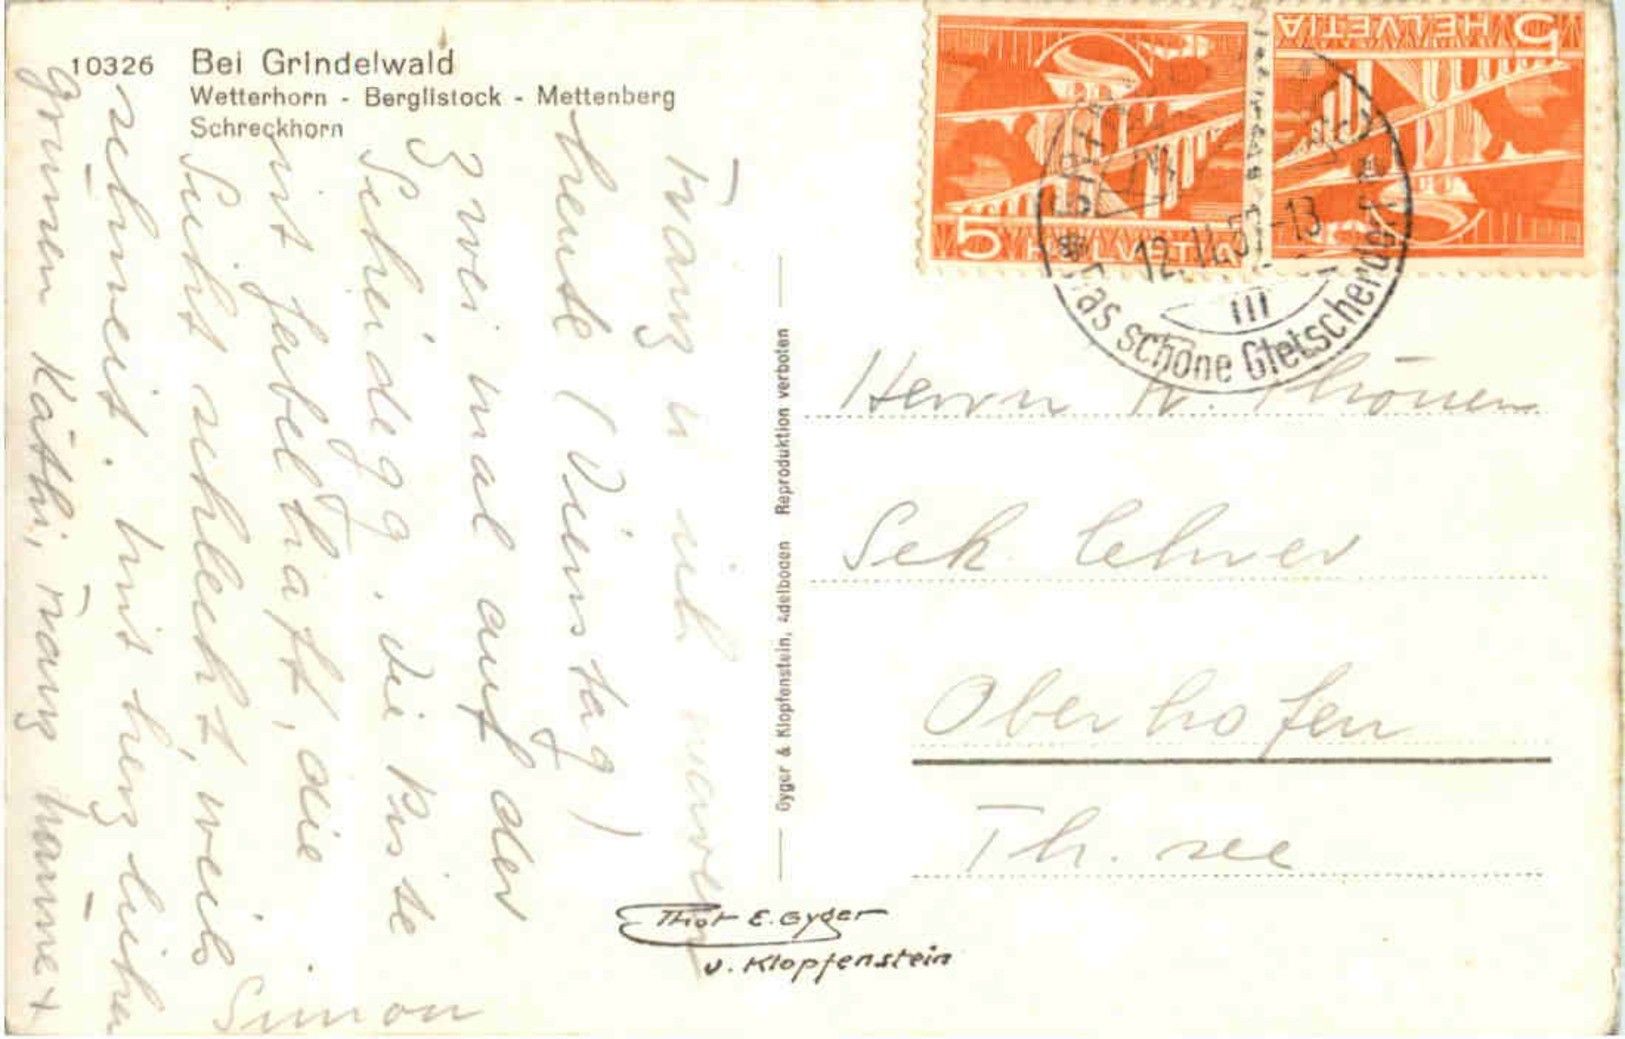 10326 Bei Grindelwald
Wetterhorn - Berglistock - Mettenberg
Schreckhorn
HELVETIA 5
5 HELVETIA
12. 13
III
das schöne Gletscherdorf
Gyger & Klopfenstein, Adelboden Reproduktion verboten
Fränz u ich waren
heute (Dienstag)
zwei mal auf der
Scheidegg. Die Piste
ist fabelhaft, die
Sicht schlecht, weils
schneit. mit herzlichen
Grüssen Käthi, Fränz, Hänne +
Simon
Herrn Thönen
Sek. Lehrer
Oberhofen
Th. see
Phot E. Gyger
u. Klopfenstein